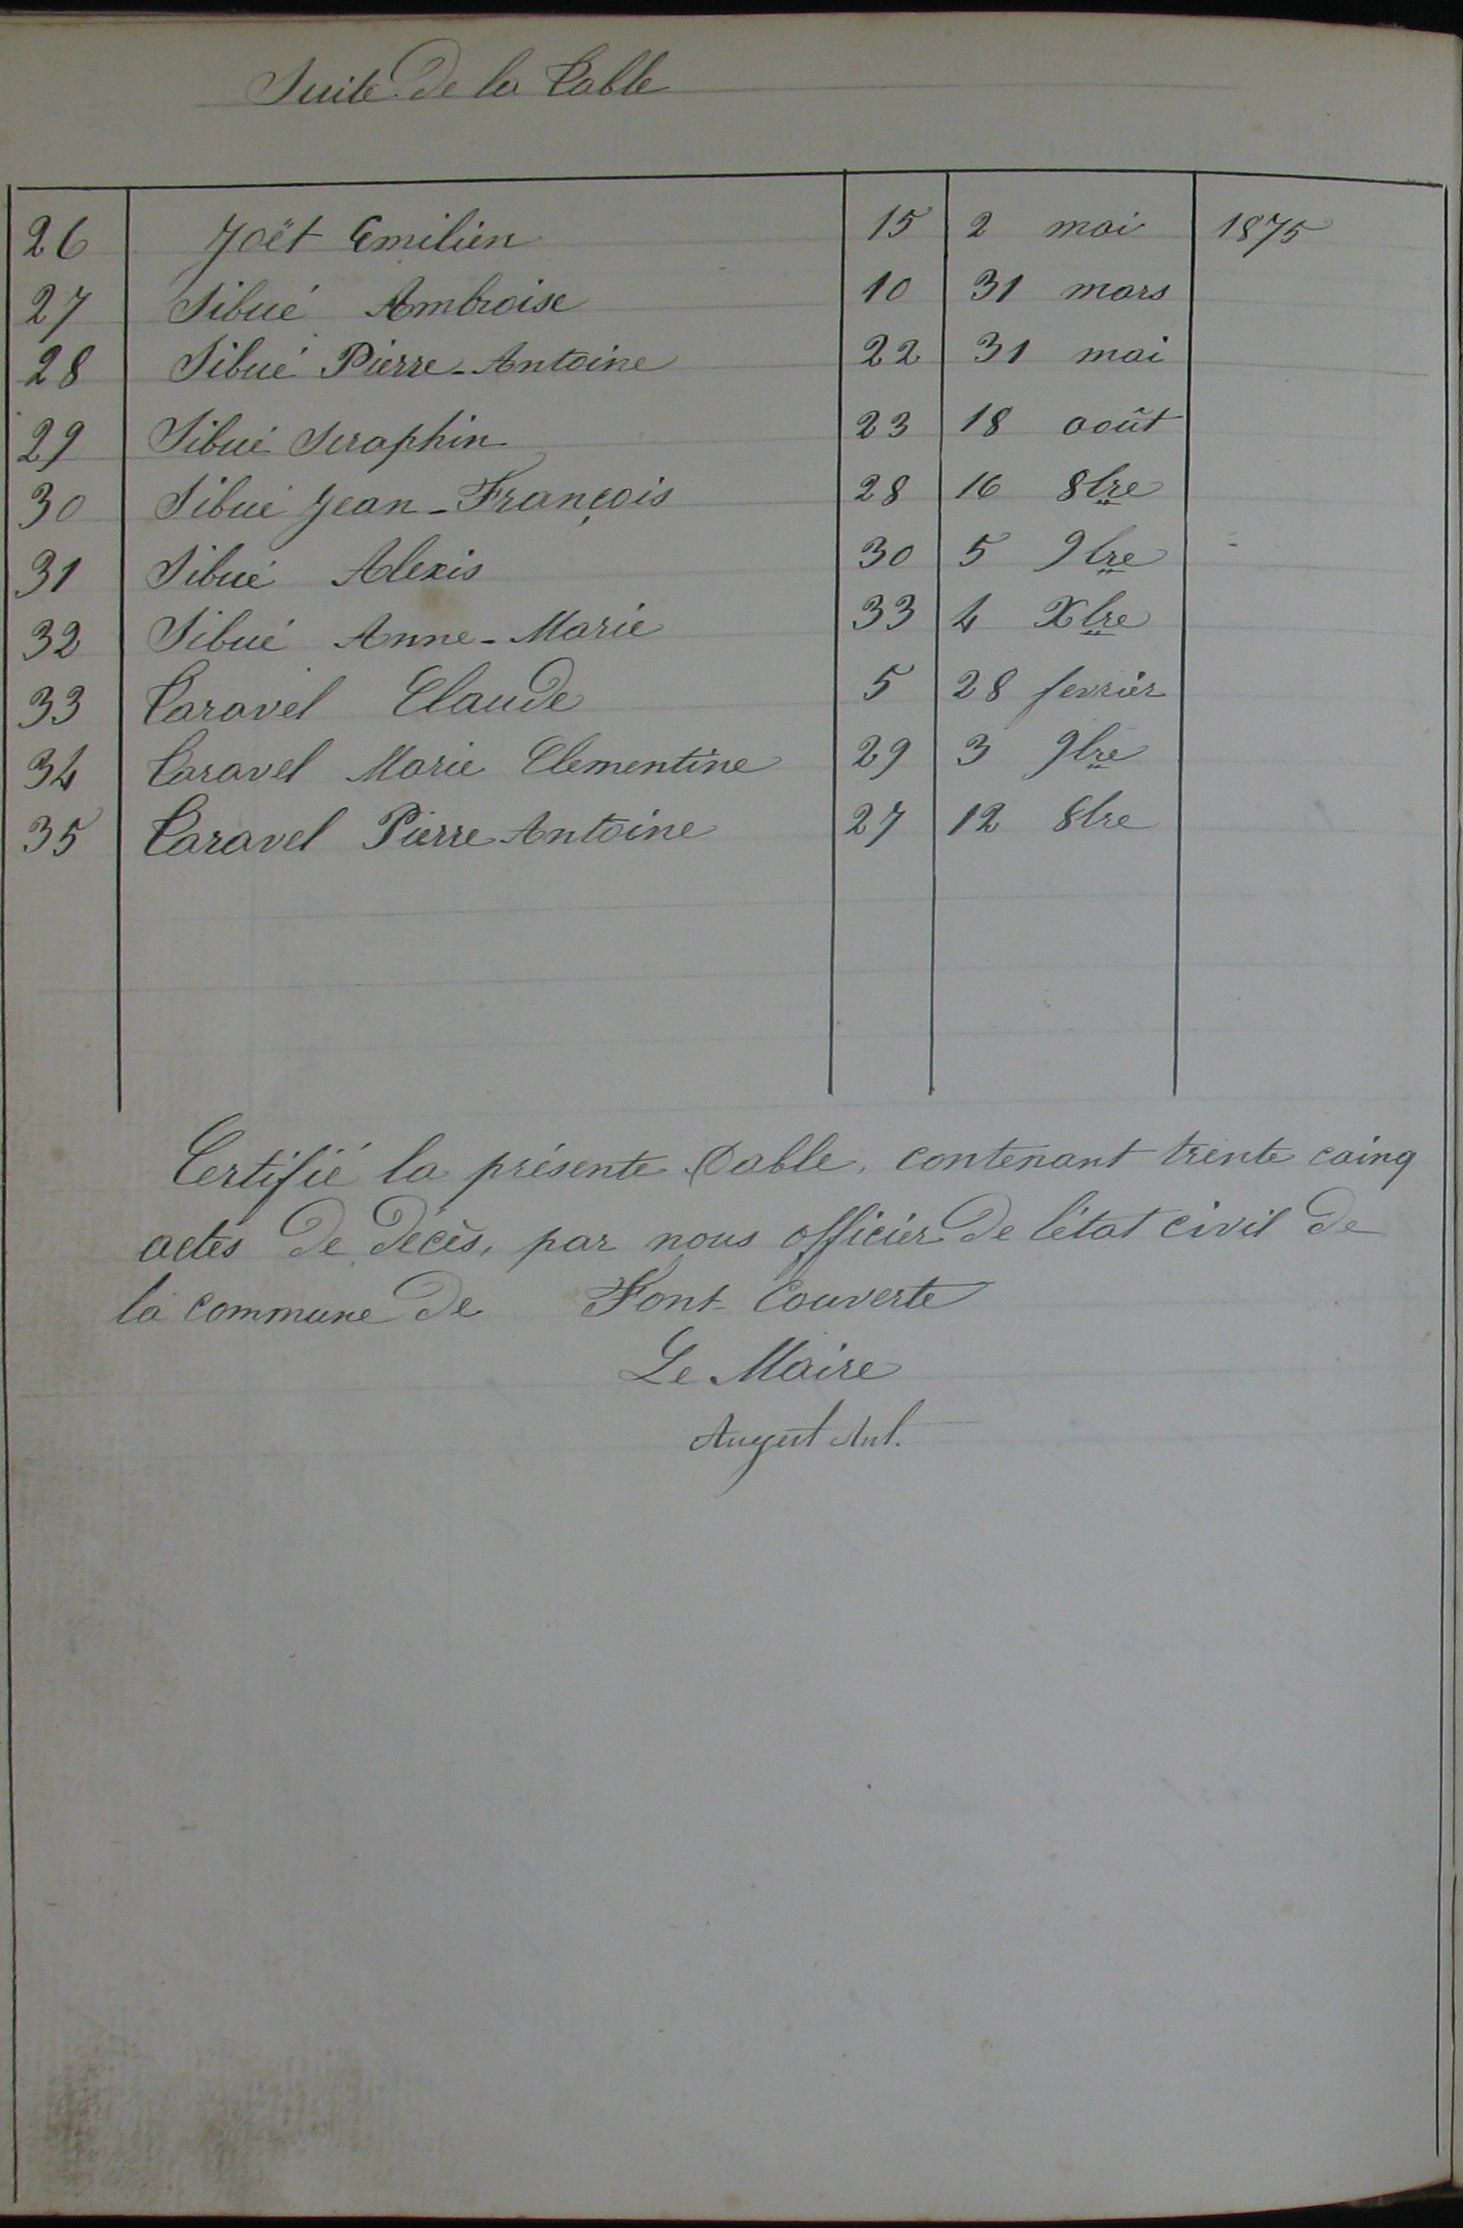 Suite de la Table
26 Joët Emilien 15 2 mai 1875
27 Sibué Ambroise 10 31 mars
28 Sibué Pierre-Antoine 22 31 mai
29 Sibué Seraphin 23 18 août
30 Sibué Jean-François 28 16 8bre
31 Sibué Alexis 30 5 9bre
32 Sibué Anne-Marie 33 4 Xbre
33 Taravel Claude 5 28 fevrier
34 Taravel Marie Clementine 29 3 9bre
35 Taravel Pierre Antoine 27 12 8bre
Certifié la présente Table, contenant trente cainq
actes de décès, par nous officier de l'état civil de
la commune de Font-Couverte
Le Maire
Augert Ant.